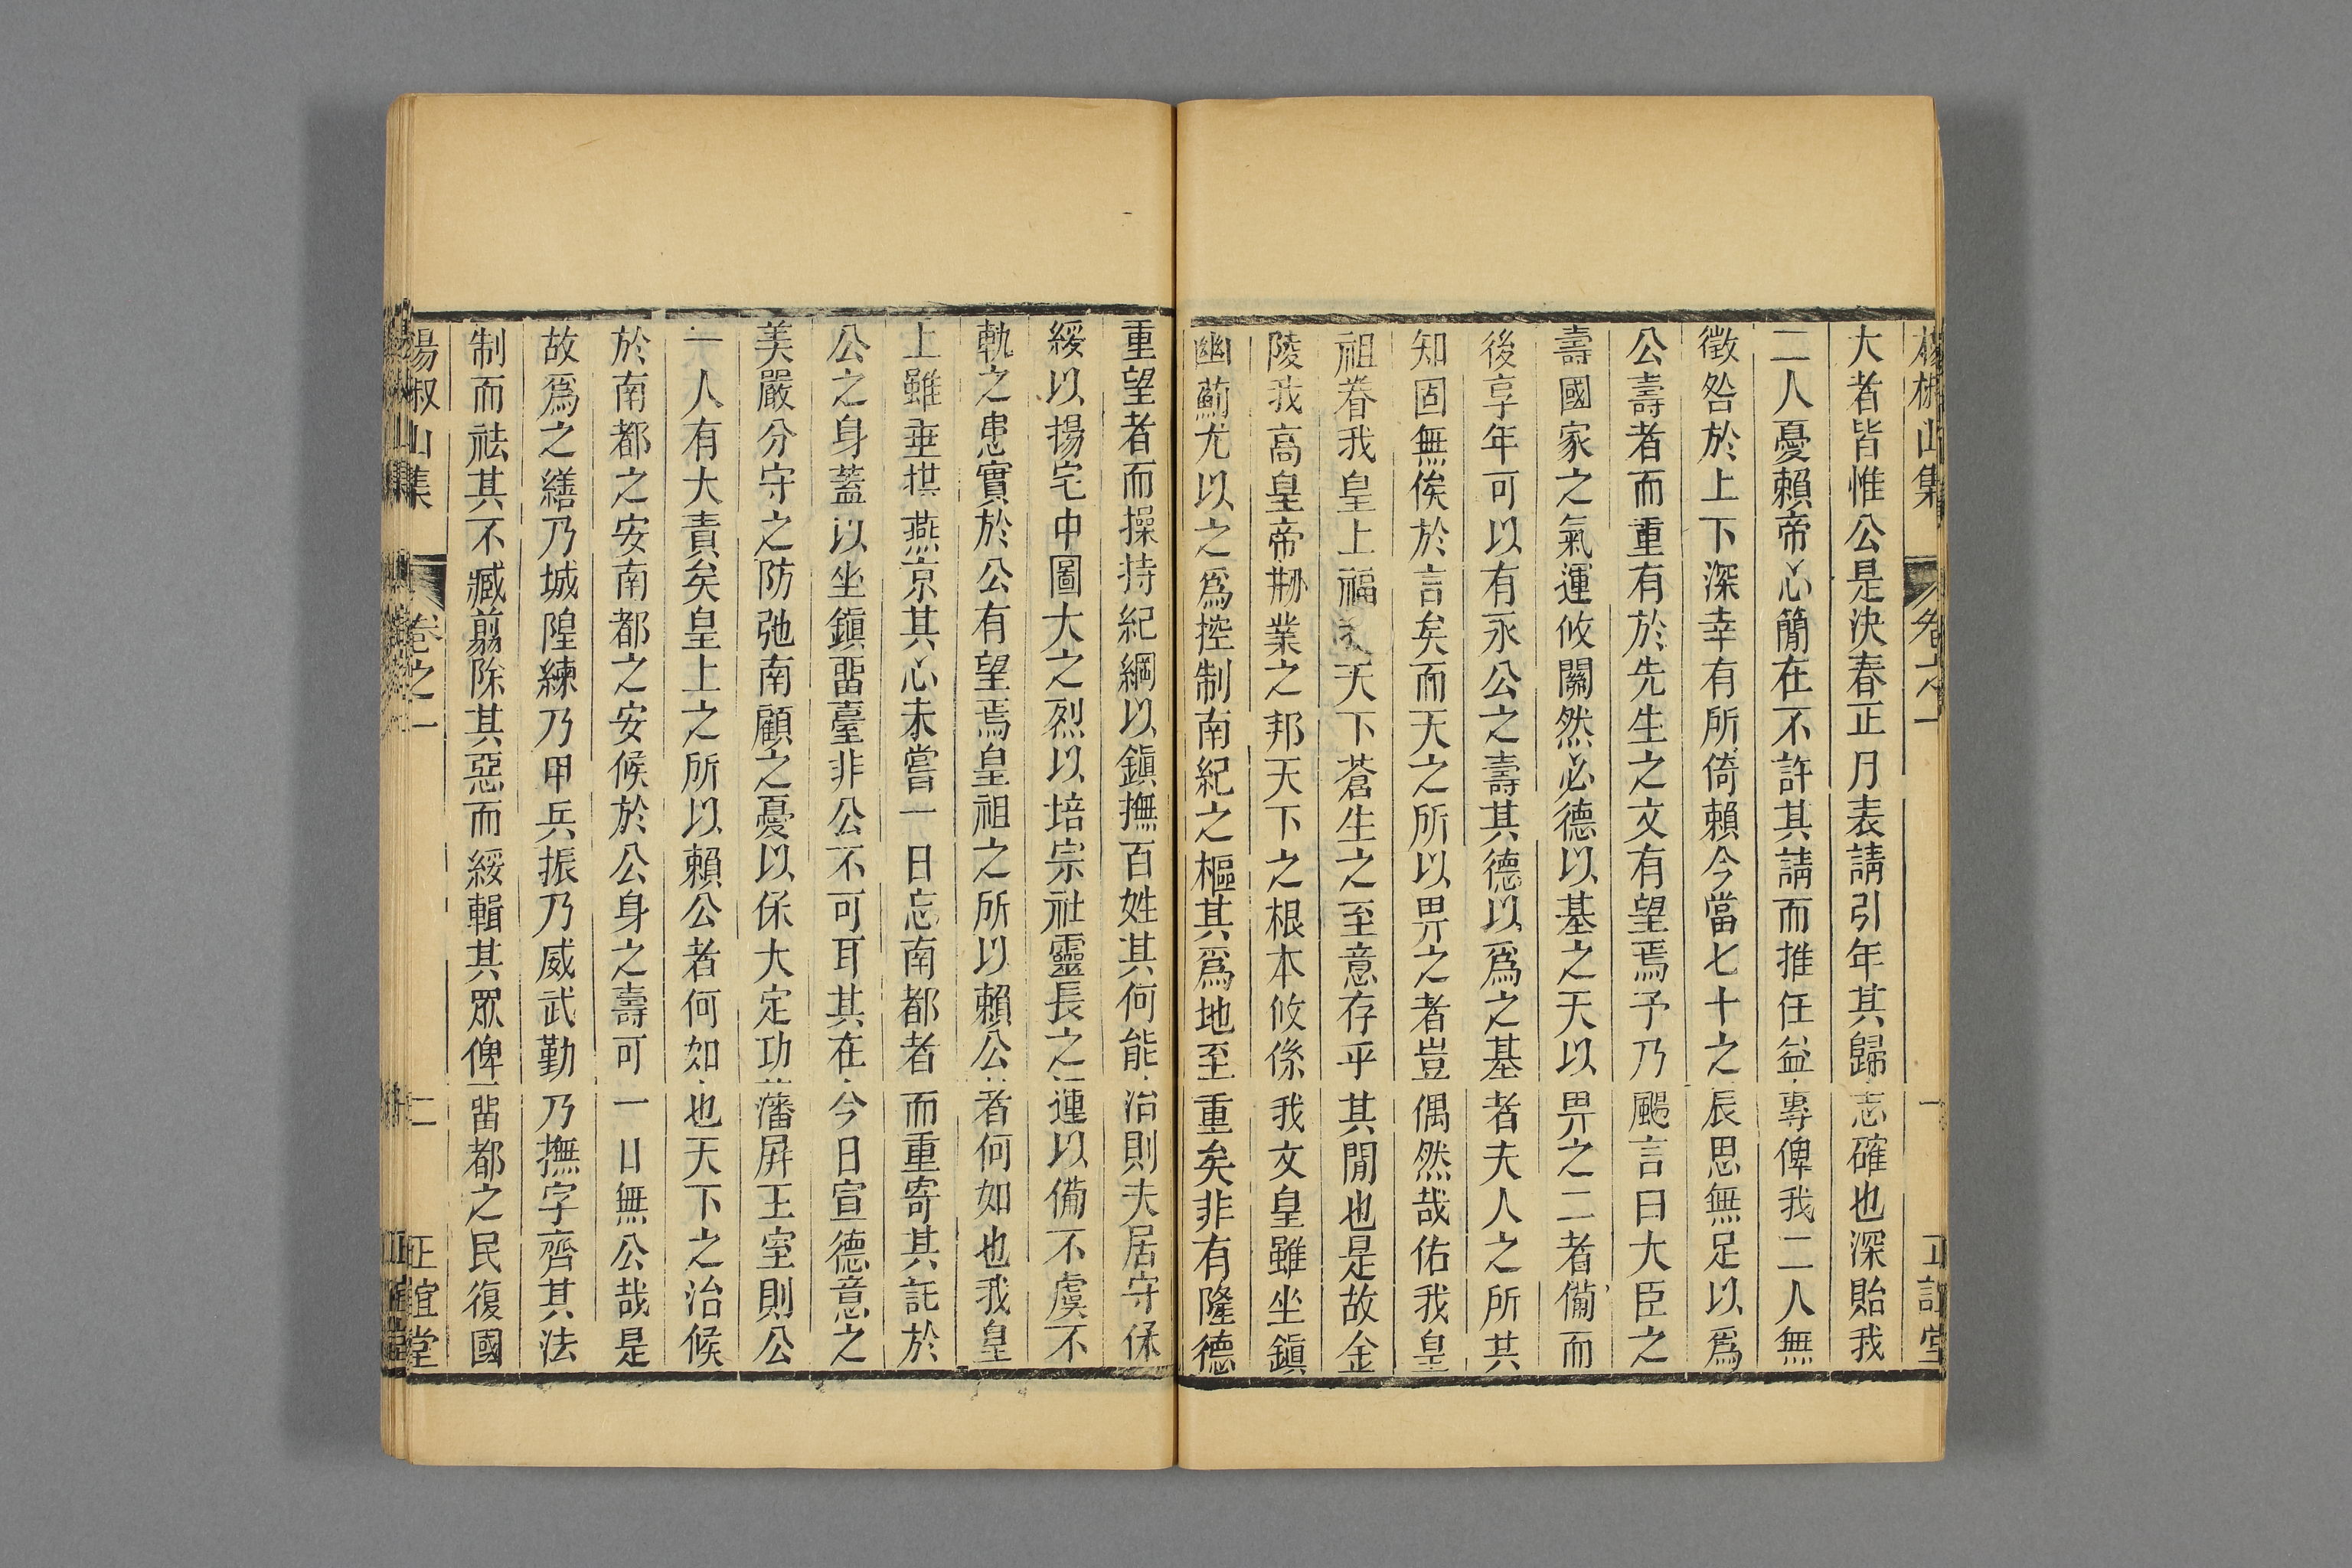 楊椒山集 卷之一 一 正誼堂
大者皆惟公是決春正月表請引年其歸志確也深貽我
二人憂賴帝心簡在不許其請而推任益專俾我二人無
徵咎於上下深幸有所倚賴今當七十之辰思無足以爲
公壽者而重有於先生之文有望焉予乃颺言曰大臣之
壽國家之氣運攸關然必德以基之天以畀之二者備而
後享年可以有永公之壽其德以爲之基者夫人之所其
知固無俟於言矣而天之所以畀之者豈偶然哉佑我皇
祖眷我皇上福天下蒼生之至意存乎其間也是故金
陵我高皇帝剏業之邦天下之根本攸係我文皇雖坐鎭
幽薊尤以之爲控制南紀之樞其爲地至重矣非有隆德
重望者而操持紀綱以鎭撫百姓其何能治則夫居守保
綏以揚宅中圖大之烈以培宗社靈長之運以備不虞不
軌之患實於公有望焉皇祖之所以賴公者何如也我皇
上雖垂拱燕京其心未嘗一日忘南都者而重寄其託於
公之身蓋以坐鎭畱臺非公不可耳其在今日宣德意之
美嚴分守之防弛南顧之憂以保大定功藩屏王室則公
一人有大責矣皇上之所以賴公者何如也天下之治候
於南都之安南都之安候於公身之壽可一日無公哉是
故爲之繕乃城隍練乃甲兵振乃威武勤乃撫字齊其法
制而祛其不臧翦除其惡而綏輯其眾俾畱都之民復國
楊椒山集 卷之一 二 正誼堂